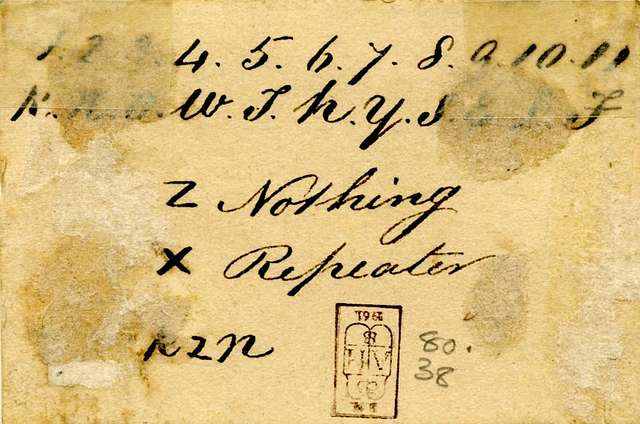 1. 2. 3. 4. 5. 6. 7. 8. 9. 10. 11
K. N. W. I. h. Y. S. F
Z Nothing
X Repeater
K Z N
1961
80.
38